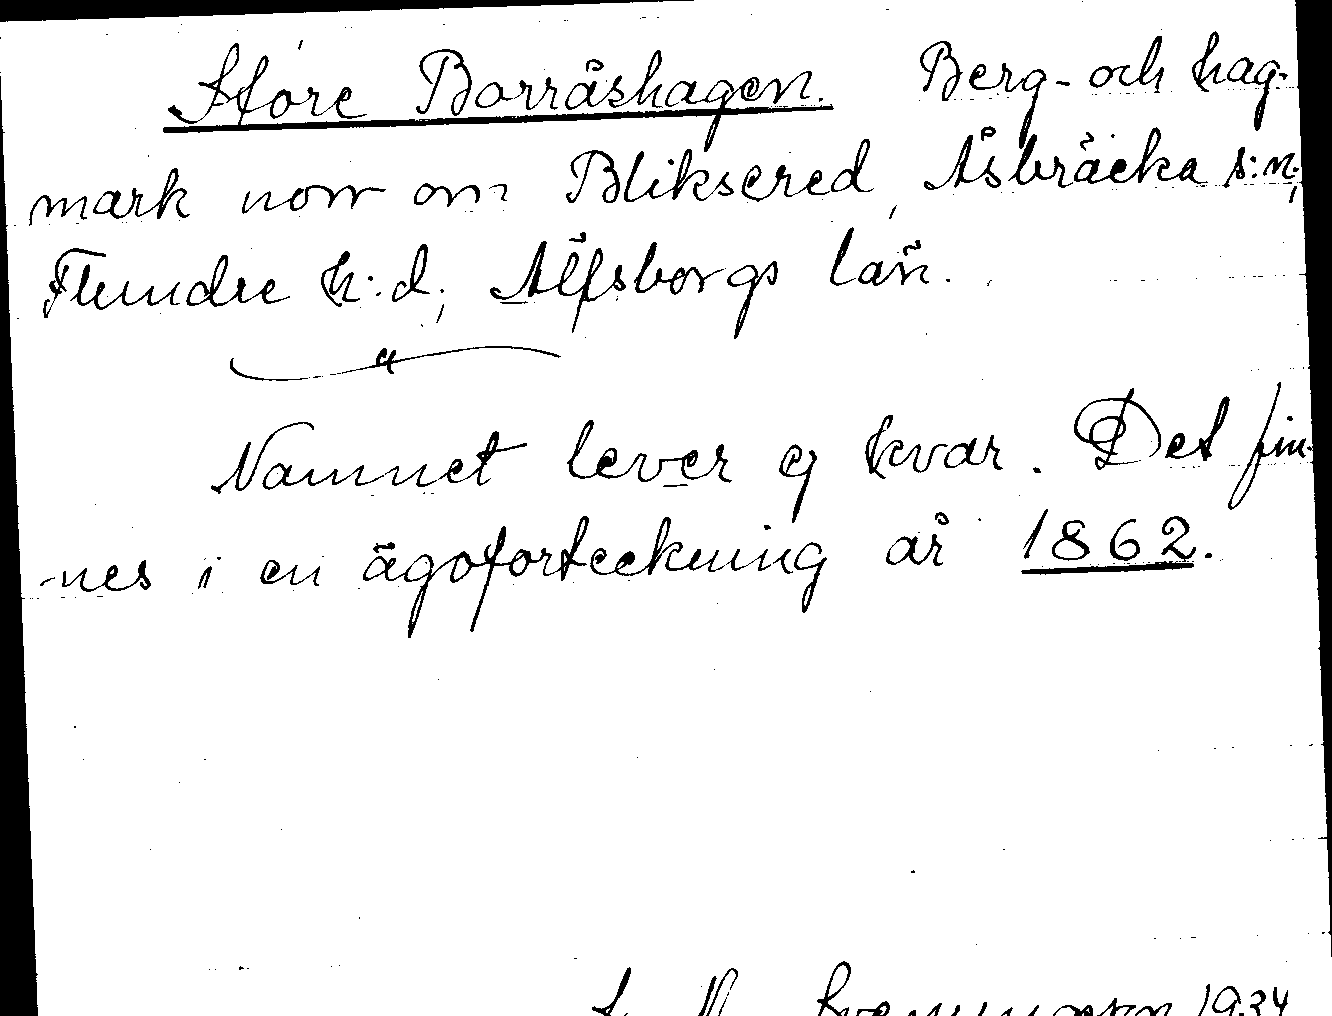 Store Borråshagen. Berg- och hag-
mark norr om Bliksered, Åsbräcka s:n,
Flundre h:d, Älfsborgs län.
Namnet lever ej kvar. Det fin-
-nes i en ägoförteckning år 1862.
1934